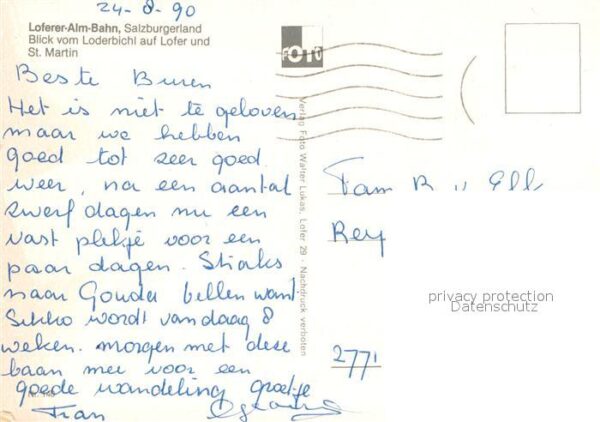 24-8-90
Loferer-Alm-Bahn, Salzburgerland
Blick vom Loderbichl auf Lofer und
St. Martin
FOTO
Beste Buren
Het is niet te geloven
maar we hebben
goed tot zeer goed
weer, na een aantal
zwerf dagen nu een
vast plekje voor een
paar dagen. Straks
naar Gouda bellen want
wordt vandaag 8
weken. morgen met deze
baan mee voor een
goede wandeling groetje
Fran
Verlag Foto Walter Lukas, Lofer 29 · Nachdruck verboten
Fam
2771
privacy protection
Datenschutz